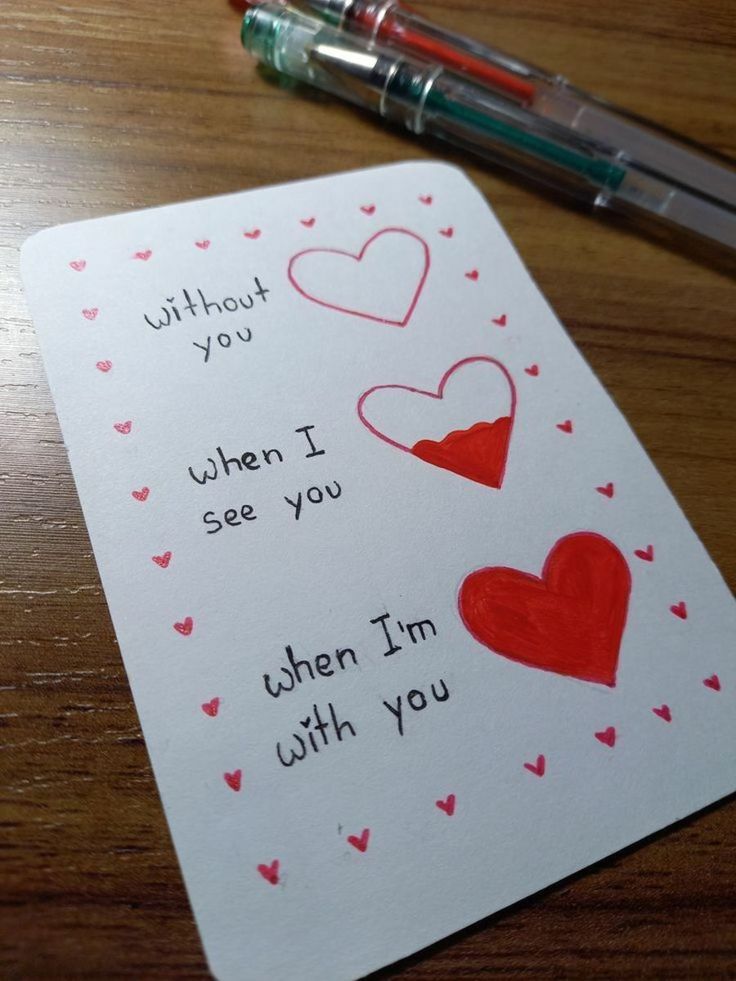 without
you
when I
see you
when I'm
with you